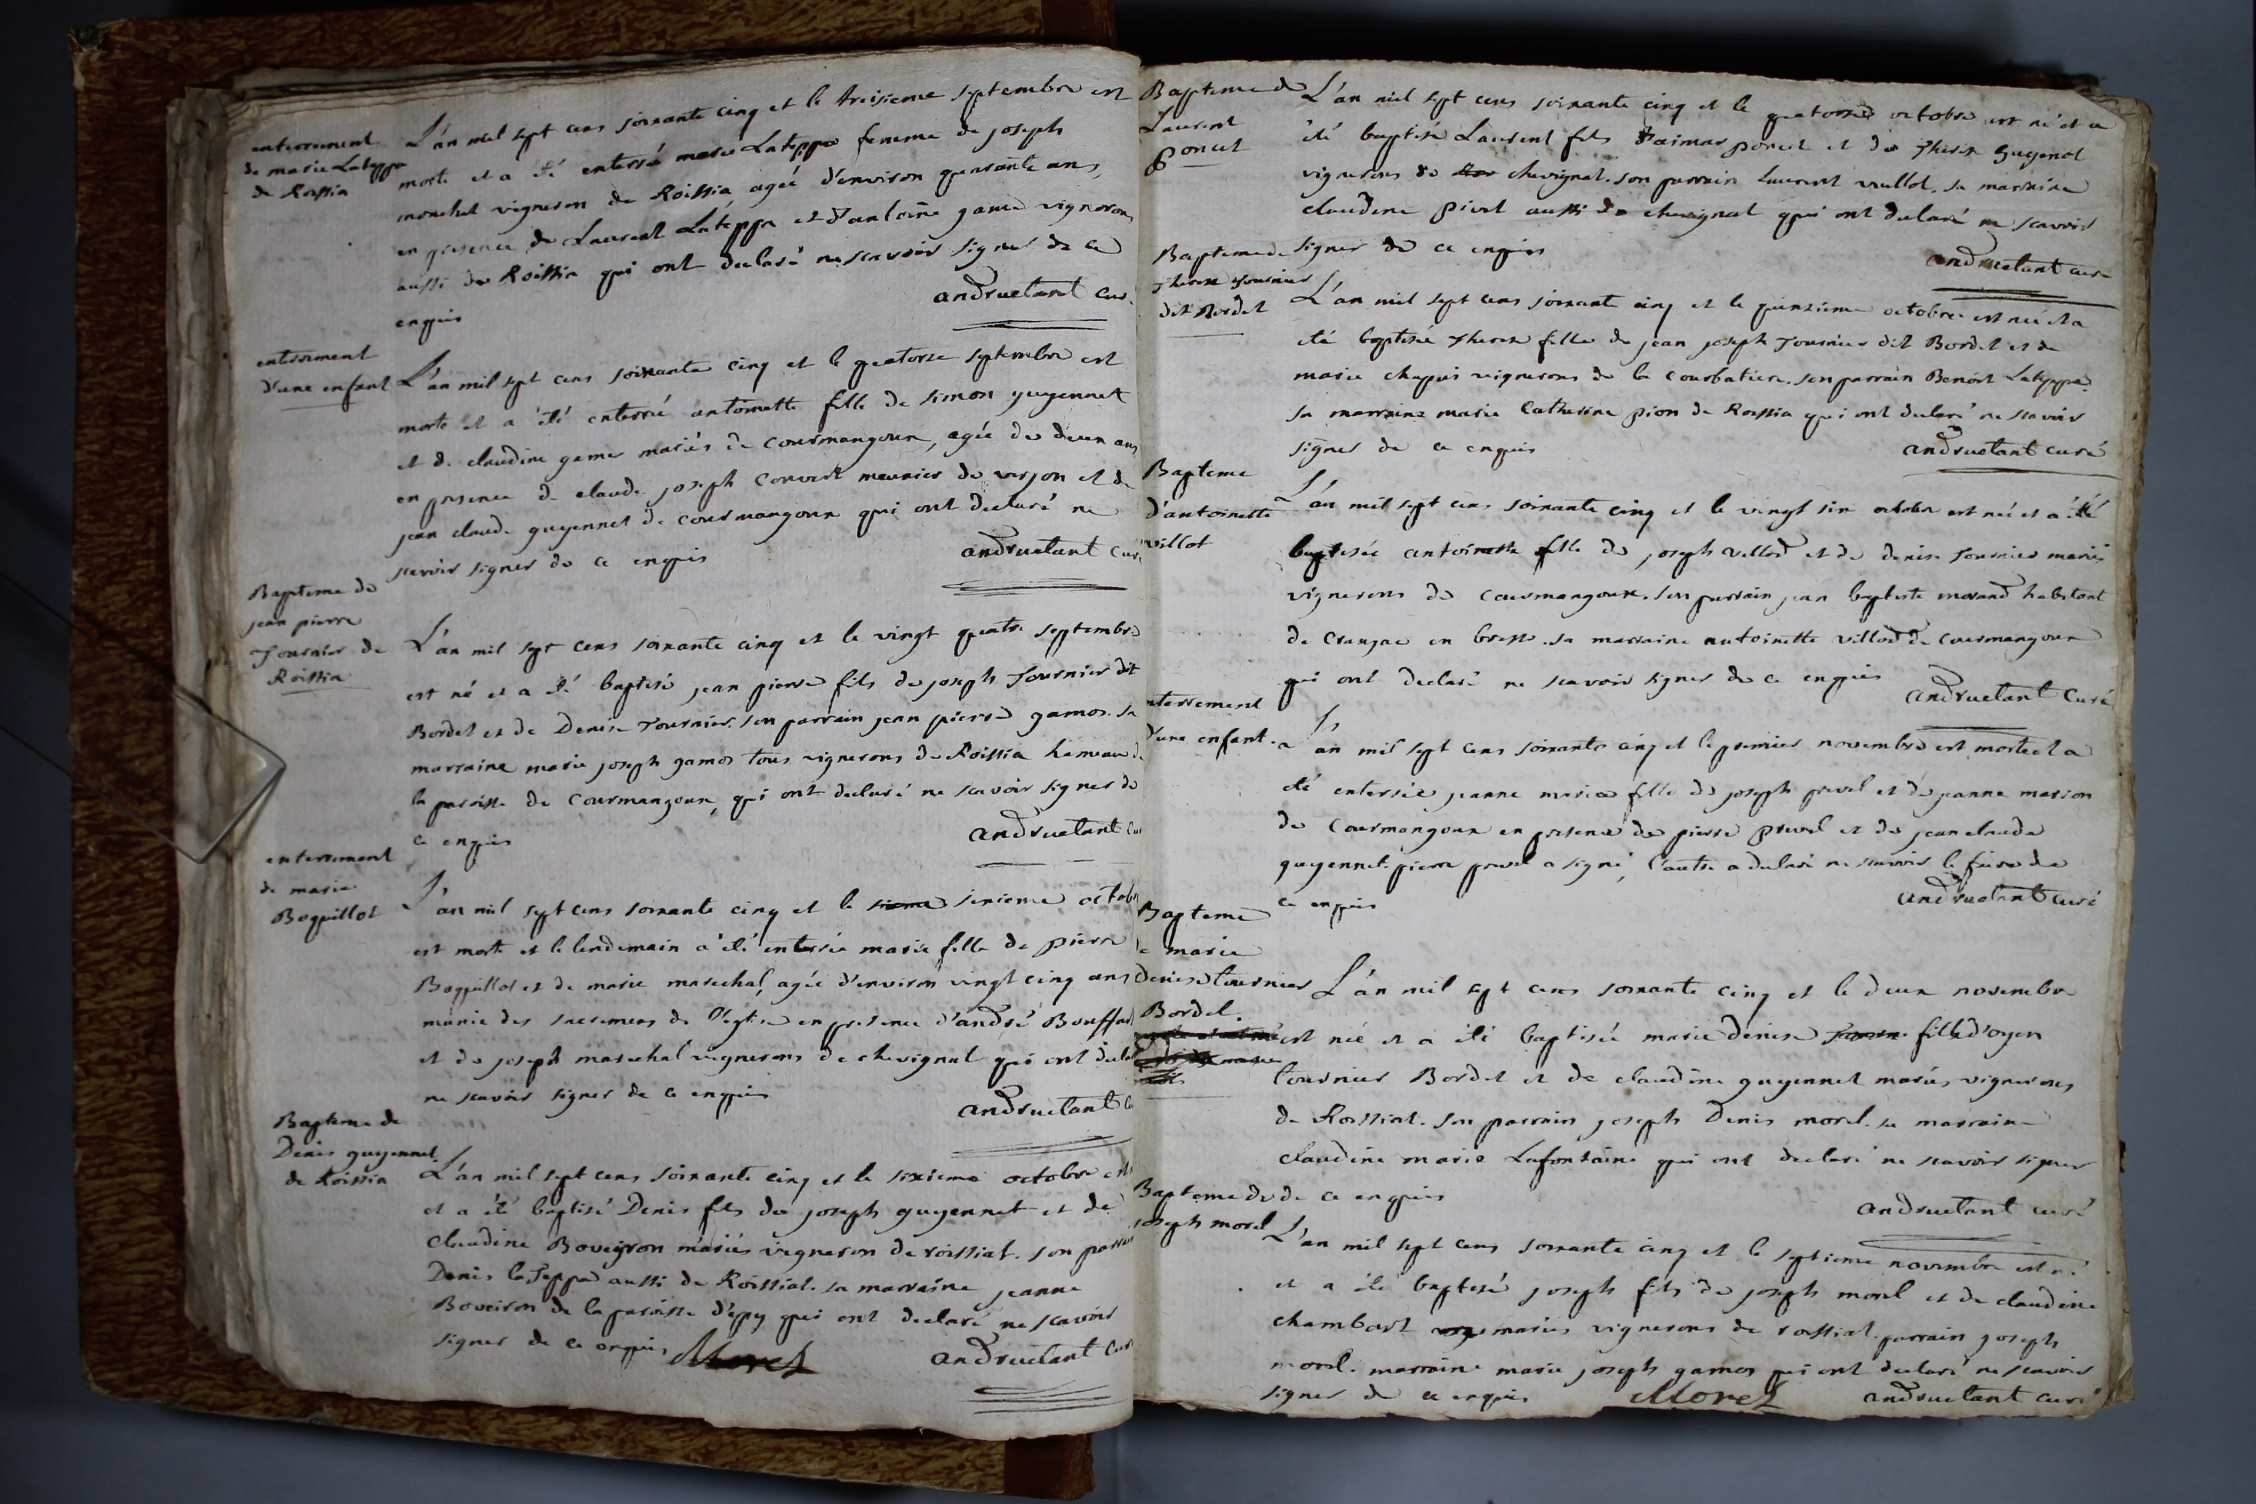 enterrement
de marie Lateppe
de Roissia
L'an mil sept cens soixante cinq et le treisieme septembre est
morte et a été enterrée marie Lateppe femme de joseph
monchet vigneron de Roissia agée d'environ quarante ans,
en presence de Laurent Lateppe et d'antoine game vignerons
aussi de Roissia qui ont declaré ne scavoir signer de ce
enquis
andruetant curé
enterrement
d'une enfant
L'an mil sept cens soixante cinq et le quatorze septembre est
morte et a été enterrée antoinette fille de simon guyennet
et de claudine gamer mariés de courmangoux, agée de deux ans
en presence de claude joseph Convert meunier de verjon et de
jean claude guyennet de courmangoux qui ont declaré ne
scavoir signer de ce enquis
andruetant curé
Bapteme de
jean pierre
Tournier de
Roissia
L'an mil sept cens soixante cinq et le vingt quatre septembre
est né et a été baptisé jean pierre fils de joseph Tournier dit
Bordet et de Denise Tournier. son parrain jean pierre gamos. sa
marraine marie joseph gamos tous vignerons de Roissia hameau de
la paroisse de Courmangoux, qui ont declaré ne scavoir signer de
ce enquis
andruetant curé
enterrement
de marie
Boquillot
L'an mil sept cens soixante cinq et le sixieme octobre
est morte et le lendemain a été enterrée marie fille de pierre
Boquillot et de marie marechal, agée d'environ vingt cinq ans
munie des sacremens de l'eglise en presence d'andré Bouffard
et de joseph marechal vignerons de chevignat qui ont declaré
ne scavoir signer de ce enquis
andruetant curé
Bapteme de
Denis guyennet
de Roissia
L'an mil sept cens soixante cinq et le sixieme octobre est
et a été baptisé Denis fils de joseph guyennet et de
Claudine Boveyron mariés vigneron de roissiat. son parrain
Denis la Teppe aussi de Roissiat. sa marraine jeanne
Boveiron de la paroisse d'epy qui ont declaré ne scavoir
signer de ce enquis
Morel
andruetant curé
Bapteme de
Laurent
poncet
L'an mil sept cens soixante cinq et le quatorze octobre est né et a
été baptisé Laurent fils d'aimar poncet et de Therese guyenot
vignerons de chevignat. son parrain laurent vuillot. sa marraine
claudine pivet aussi de chevignat qui ont declaré ne scavoir
signer de ce enquis
andruetant curé
Bapteme de
Therese Tournier
dit Bordet
L'an mil sept cens soixante cinq et le quinzieme octobre est née et a
été baptisée Therese fille de jean joseph Tournier dit Bordet et de
marie chapuis vignerons de la courbatiere. son parrain Benoit Lateppe.
sa marraine marie Catherine pion de Roissia qui ont declaré ne scavoir
signer de ce enquis
andruetant curé
Bapteme
d'antoinette
villot
L'an mil sept cens soixante cinq et le vingt six octobre est née et a été
baptisée antoinette fille de joseph villod et de denise Tournier mariés
vignerons de courmangoux. son parrain jean baptiste morand habitant
de Cranzac en bresse. sa marraine antoinette villod de Courmangoux
qui ont declaré ne scavoir signer de ce enquis
andruetant Curé
enterrement
d'une enfant.
L'an mil sept cens soixante cinq et le premier novembre est morte et a
été enterrée jeanne marie fille de joseph prevel et de jeanne marion
de Courmangoux en presence de pierre prevel et de jean claude
guyennet. pierre prevel a signé, l'autre a declaré ne scavoir le faire de
ce enquis
andruetant curé
Bapteme
de marie
denise Tournier
Bordel.
L'an mil sept cens soixante cinq et le deux novembre
est née et a été baptisée marie denise fille d'oyen
Tournier Bordet et de claudine guyennet mariés vignerons
de Roissiat. son parrain joseph Denis morel. sa marraine
claudine marie Lafontaine qui ont declaré ne scavoir signer
de ce enquis
andruetant curé
Bapteme de
joseph morel
L'an mil sept cens soixante cinq et le septieme novembre est né
et a été baptisé joseph fils de joseph morel et de claudine
chambart mariés vignerons de roissiat. parrain joseph
morel. marraine marie joseph gamos qui ont declaré ne scavoir
signer de ce enquis
Morel
andruetant curé